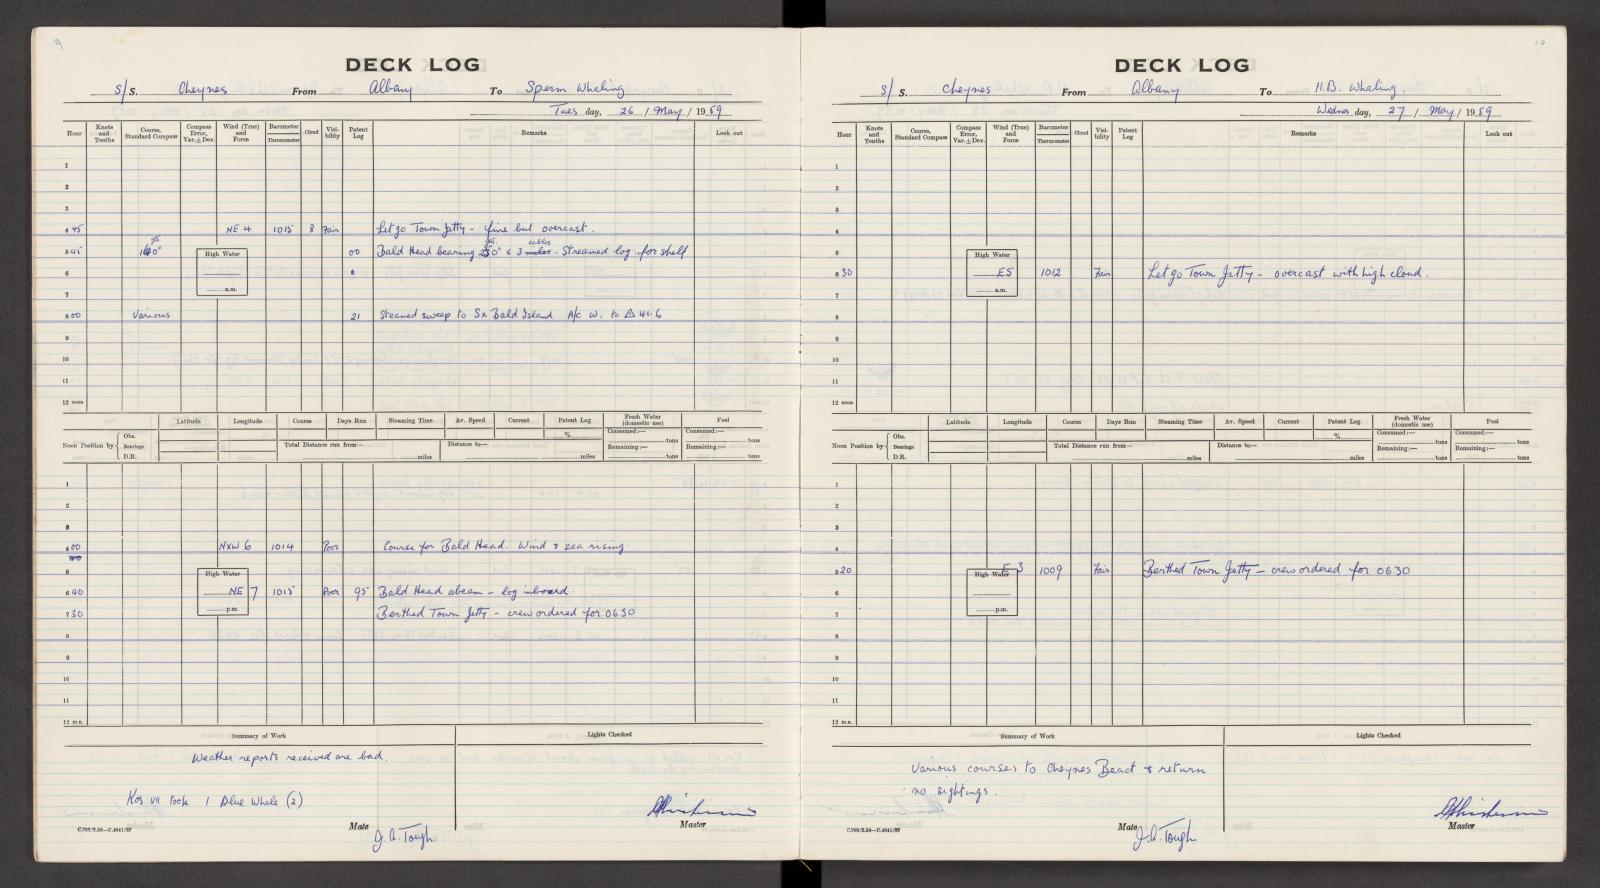 9
DECK LOG
s/ S. Cheynes From Albany To Sperm Whaling
Tues day, 26 / May / 1959
Hour Knots and Tenths Course, Standard Compass Compass Error, Var.±Dev. Wind (True) and Force Barometer Thermometer Cloud Visi-bility Patent Log Remarks Look out
1
2
3
4 45 NE 4 1015 8 Fair Let go Town Jetty - fine but overcast.
5 45 00 Bald Head bearing x 3 miles cables - Streamed log for shelf
High Water
a.m.
6
7
8 00 Various 21 Steamed sweep to Sx Bald Island A/c W. to △ 41.6
9
10
11
12 noon
Latitude Longitude Course Days Run Steaming Time Av. Speed Current Patent Log Fresh Water (domestic use) Fuel
% Consumed:— tons Consumed:— tons
Noon Position by Obs. Bearings D.R. Total Distance run from— miles Distance to— miles Remaining:— tons Remaining:— tons
1
2
3
4 00 NxW 6 1014 Poor Course for Bald Head. Wind & sea rising.
5
High Water
p.m.
6 40 NE 7 1015 Poor 95 Bald Head abeam - log inboard.
7 30 Berthed Town Jetty - crew ordered for 0630
8
9
10
11
12 m.n.
Summary of Work Lights Checked
Weather reports received are bad.
Kos VII took 1 Blue Whale (2)
C.703/2.58—C.4041/57 Mate J.A. Tough Master
10
DECK LOG
s/ S. Cheynes From Albany To H.B. Whaling
Wednes day, 27 / May / 1959
Hour Knots and Tenths Course, Standard Compass Compass Error, Var.±Dev. Wind (True) and Force Barometer Thermometer Cloud Visi-bility Patent Log Remarks Look out
1
2
3
4
5
High Water
a.m.
6 30 E5 1012 Fair Let go Town Jetty - overcast with high cloud.
7
8
9
10
11
12 noon
Latitude Longitude Course Days Run Steaming Time Av. Speed Current Patent Log Fresh Water (domestic use) Fuel
% Consumed:— tons Consumed:— tons
Noon Position by Obs. Bearings D.R. Total Distance run from— miles Distance to— miles Remaining:— tons Remaining:— tons
1
2
3
4
5 20 E 3 1009 Fair Berthed Town Jetty - crew ordered for 0630
High Water
p.m.
6
7
8
9
10
11
12 m.n.
Summary of Work Lights Checked
Various courses to Cheynes Beact & return
no sightings.
C.703/2.58—C.4041/57 Mate J.A. Tough Master